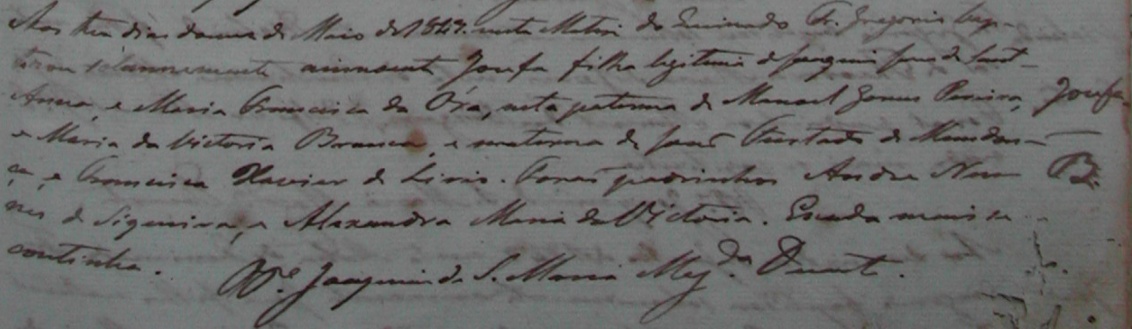 Aos tres dias do mez de Maio de 1847. nesta Matriz do Fr. Gregorio bap-
tizou solemnemente a innocente Josefa filha legitima de Joaquim Jose de Sant
Anna, e Maria Francisca da Ora, neta paterna de Manoel Gomes Pereira, Josefa
e Maria da Victoria Branca, e materna de Furtado de Mendon-
ça, e Francisca Xavier de Liris. Foraõ padrinhos Andre Nu- B.
nes de Siqueira, e Alexandra Maria da Victoria. E nada mais se
continha.
Joaquim de S. Maria